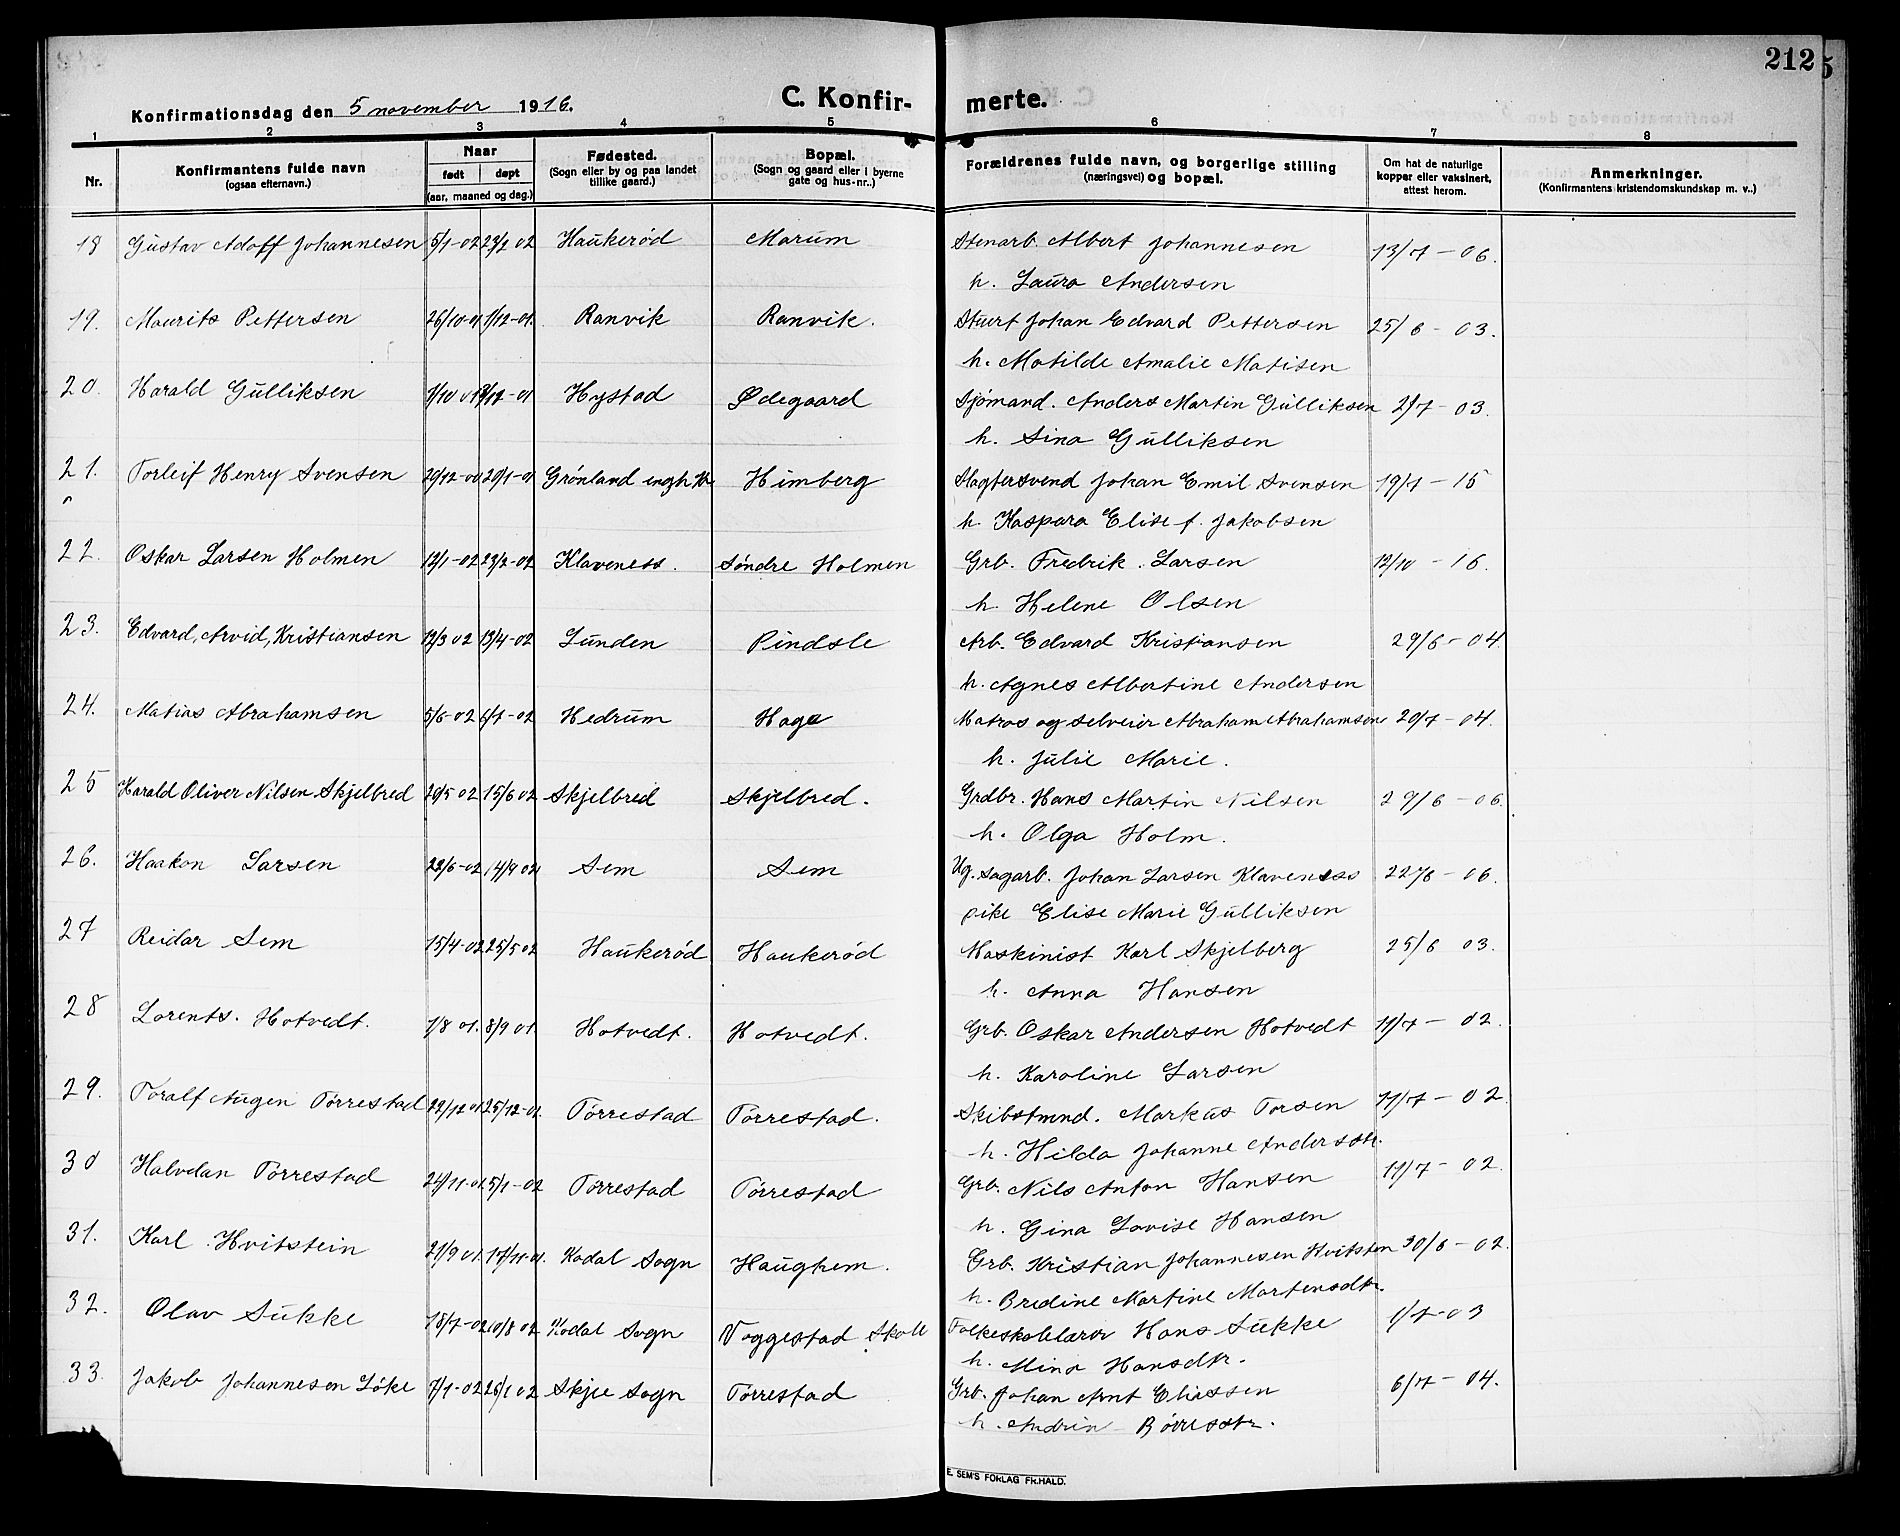 212
Konfirmationsdag den 5 november 1916.
C. Konfirmerte.
1 2 3 4 5 6 7 8
Nr.
Konfirmantens fulde navn
(ogsaa efternavn.)
Naar
født døpt
(aar, maaned og dag.)
Fødested.
(Sogn eller by og paa landet
tillike gaard.)
Bopæl.
(Sogn og gaard eller i byerne
gate og hus-nr..)
Forældrenes fulde navn, og borgerlige stilling
(næringsvei) og bopæl.
Om hat de naturlige
kopper eller vaksinert,
attest herom.
Anmerkninger.
(Konfirmantens kristendomskundskap m. v..)
18 Gustav Adolf Johannesen 5/1-02 23/2 02 Haukerød Marum Stenarb. Albert Johannesen 13/7 - 06.
h. Laura Andersen
19. Maurits Pettersen 26/10-01 1/12-01. Ranvik Ranvik. Stuert Johan Edvard Pettersen 25/6 - 03.
h. Matilde Amalie Matisen
20. Harald Gulliksen 1/10 01 /12-01 Hystad Ødegaard Sjømand. Anders Martin Gulliksen 2/7 - 03.
h. Sina Gulliksen
21. Torleif Henry Svensen 29/12-00 20/1-01 Grønland Himberg Slagtersvend Johan Emil Svensen 19/7 - 15
h. Kaspara Elise f. Jakobsen
22. Oskar Larsen Holmen 12/1-02 23/2-02 Klaveness. Søndre Holmen Grb. Fredrik. Larsen 12/10 - 16.
h. Helene Olsen
23. Edvard, Arvid, Kristiansen 12/3 02 13/4-02 Lunden Pindsle Arb. Edvard Kristiansen 29/6 - 04.
h. Agnes Albertine Andersen
24. Matias Abrahamsen 5/6-02 6/7-02 Hedrum Haga Matros og selveier Abraham Abrahamsen 20/7 - 04.
h. Julie Marie.
25 Harald Oliver Nilsen Skjelbred 20/5 02 15/6 02 Skjelbred Skjelbred. Grdbr. Hans Martin Nilsen 29/6 - 06.
h. Olga Holm.
26. Haakon Larsen 22/6-02 14/9 02 Sem Sem Ug. sagarb. Johan Larsen Klaveness 22/6 - 06.
pike Elise Marie Gulliksen
27 Reidar Sem 15/4-02 25/5 02 Haukerød Haukerød Maskinist Karl Skjelberg 25/6 03.
h. Anna Hansen
28 Lorents. Hotvedt. 1/8 01. 8/9 01. Hotvedt. Hotvedt. Grb. Oskar Andersen Hotvedt 11/7 - 02.
h. Karoline Larsen
29. Toralf Augen Tørrestad 22/12 01 25/12-01. Tørrestad Tørrestad. Skibstmnd. Markus Torsen 11/7 - 02.
h. Hilda Johanne Andersdtr.
30 Halvdan Tørrestad 24/11-01. 5/1-02 Tørrestad Tørrestad Grb. Nils Anton Hansen 11/7 - 02.
h. Gina Lovise Hansen
31. Karl Hvitstein 21/9 01. 17/11-01. Kodal Sogn Haughem. Grb. Kristian Johannesen Hvitsten 30/6 - 02.
h. Bredine Martine Martensdtr.
32. Olav Sukke 18/7-02 10/8 02 Kodal Sogn Voggestad Skole Folkeskolelærer Hans Sukke 1/7-03
h. Mina Hansdtr.
33. Jakob Johannesen Løke 7/1-02 26/1 02 Skjee Sogn Tørrestad Grb. Johan Arnt Eliassen 6/7 - 04.
h. Andrin Børresdtr.
E. SEM'S FORLAG FR.HALD.